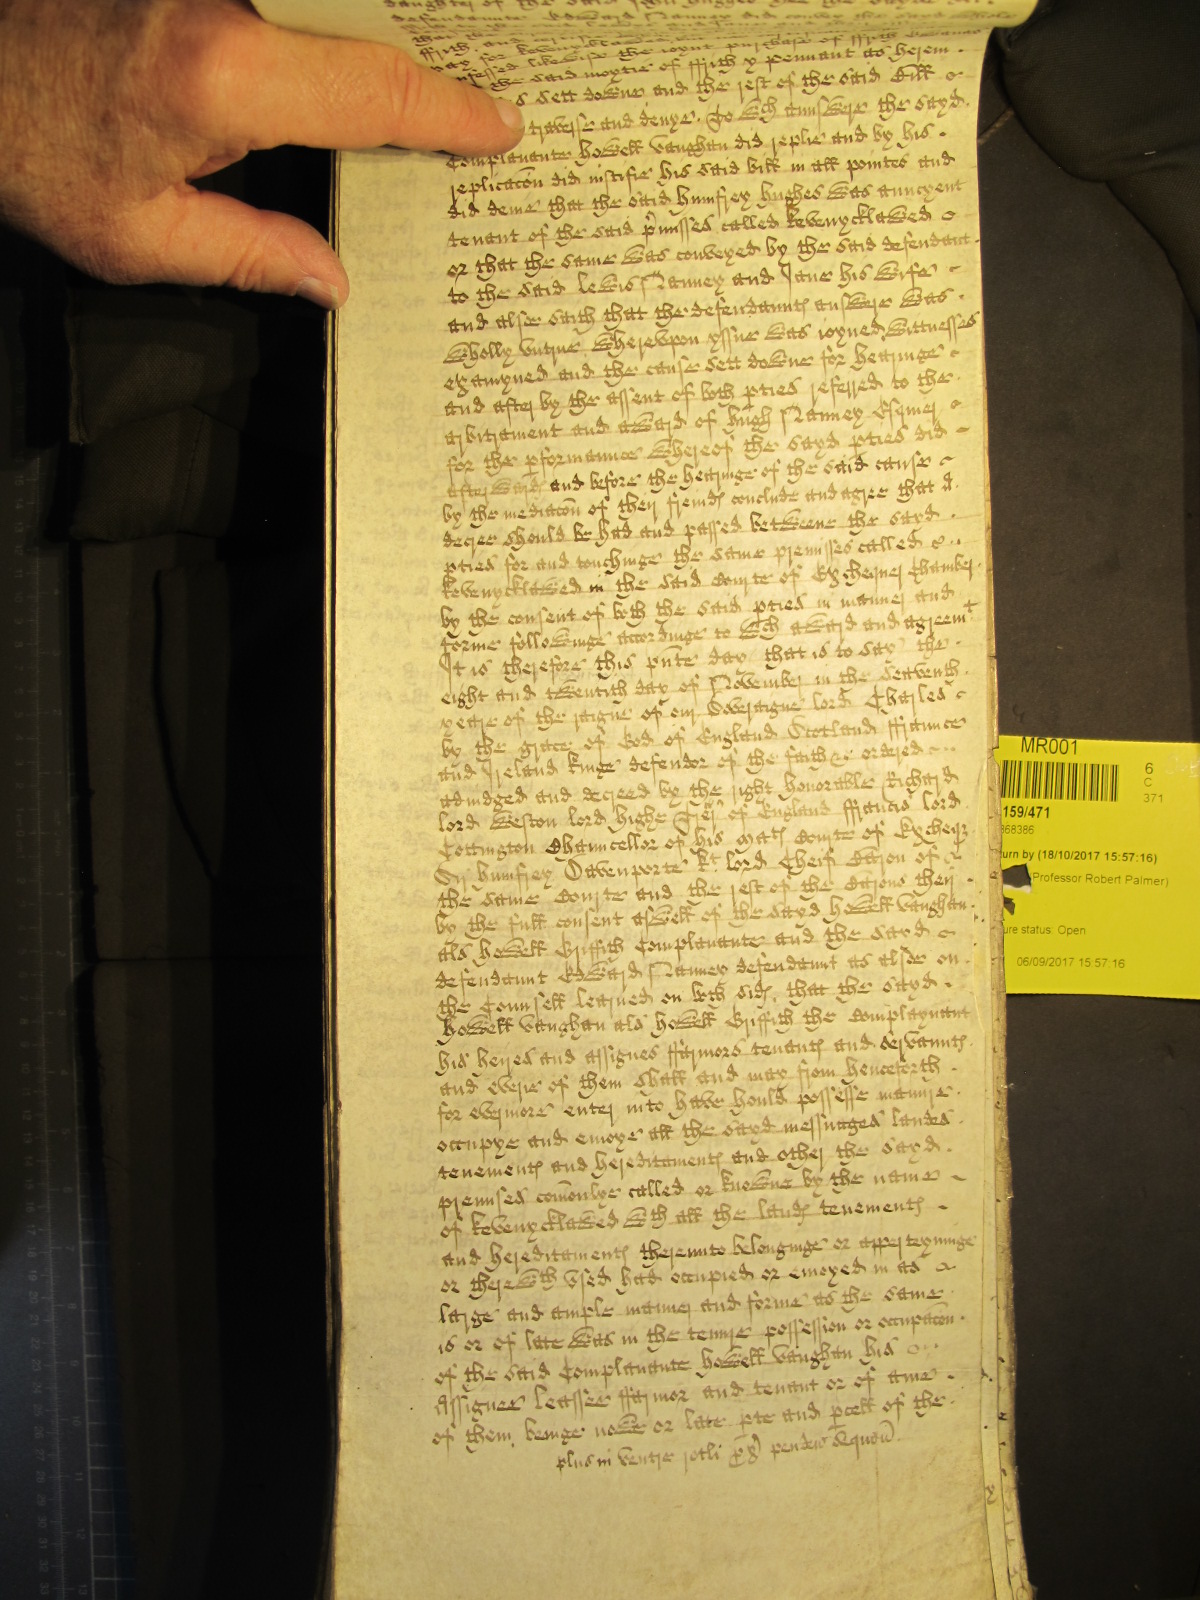 daughter of the said John hughes
defendannte Edward Nanney did convey the sayd
ffrith and
say for kevenycklawed the ioynt purchase of ffrith
confessed likewise the
the said moytie of ffrith y pennant as herein
is sett downe and the rest of the said Bill
traverse and denye. To wch aunswere the sayd
Complanante howell vaughan did replie and by his
replicacon did iustifie his said bill in all pointes and
did denie that the said humfrey hughes was auncyent
tenant of the said p'misses called kevenycklawed
or that the same was conveyed by the said defendant
to the said lewis Nanney and Jane his wife
and alsoe saith that the defendannts answere was
wholly vntrue, wherevpon yssue was ioyned, wittnesses
examyned and the cause sett downe for hearinge
and after by the assent of both pties referred to the
arbitrament and award of hugh Nanney Esquier
for the pformannce whereof the sayd pties did
afterwards and before the hearinge of the said cause
by the mediacon of their frends conclude and agree that A
decree should be had and passed betweene the sayd
pties for and touchinge the same premisses called
kevenycklawed in the said Courte of Exchequer Chamber
by the consent of both the said pties in manner and
forme followinge accordinge to wch award and agreemt
It is therefore this pnte day that is to say the
eight and twentith day of November in the seaventh
yeare of the raigne of our Soveraigne lord Charles
by the grace of God of England Scotland ffraunce
and Ireland kinge defendor of the faith &c ordered
adiudged and decreed by the right honorable Richard
lord Weston lord highe Trer of England ffrancis lord
Cottington Chauncellor of his mats Courte of Exchequer
Sr humfrey Davenporte kt lord Cheif Baron of
the same Courte and the rest of the Barons there
by the full consent aswell of the sayd howell vaughan
als howell Griffith Complanante and the sayd
defendannt Edward Nanney defendannt as alsoe on
the Counsell learned on both sids, that the sayd
howell vaughan als howell Griffith the Complaynant
his heires and assignes ffarmors tenants and servannts
and everie of them shall and may from henceforth
for evermore enter into have hould possesse manure
occupye and enioye all the sayd messuages landes
tenements and hereditaments and other the sayd
premises comonlye called or knowne by the name
of kevenycklawed wth all the lands tenements
and hereditaments therevnto belonginge or apperteyninge
or therewth vsed had occupied or enioyed in as
large and ample manner and forme as the same
is or of late was in the tenure possession or occupacon
of the said Complanante howell vaughan his
Assignee leassee ffarmor and tenant or of anie
of them, beinge nowe or late pte and pcell of the
plus in ventre rotli
MR001
6
C
371
159/471
868386
urn by (18/10/2017 15:57:16)
Professor Robert Palmer)
ure status: Open
06/09/2017 15:57:16